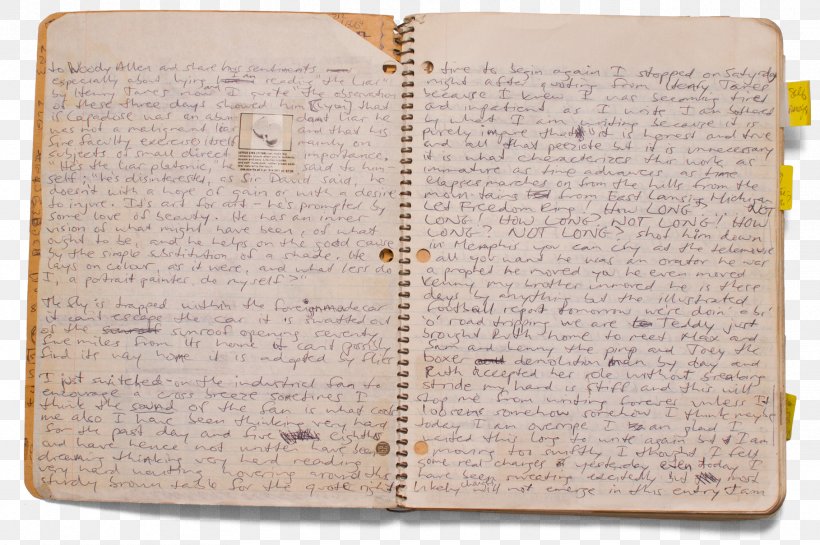 to Woody Allen and share his sentiments
especially about lying I am reading "the Liar"
by Henry James now and I quote "the observation
of these three days showed him [Lyon] that
is Capadose was an abundant liar he
was not a malignant liar and that his
fine faculty exercised itself mainly on
subjects of small direct importance.
"He's the liar platonic," he said to him-
self; "he's disinterested, as Sir David said,
doesn't with a hope of gain or with a desire
to injure. It's art for art – he's prompted by
some love of beauty. He has an inner
vision of what might have been, of what
ought to be, and he helps on the good cause
by the simple substitution of a shade. He
lays on colour, as it were, and what less do
I, a portrait painter do myself?"
The fly is trapped within the foreign made car
it can't escape the car it is swatted out
of the sunroof opening seventy
five miles from its home it can't possibly
find its way home it is adopted by flies
I just switched on the industrial fan to
encourage a cross breeze sometimes I
think the sound of the fan is what cools
me also I have been thinking very hard
for the past day and five eighths
and have hence not written have been
dreaming thinking very hard reading
very hard waiting hovering around this
sturdy brown table for the quote right
time to begin again I stopped on Saturday
night after quoting from Henry James
because I knew I was becoming tired
and impatient as I write I am bothered
by what I am writing because it is
purely impure that it is honest and true
and all that but it is unnecessary
it is what characterizes this work as
immature as time advances as time
elapses marches on from the hills from the
mountains to from East Lansing Michigan
Let Freedom Ring! How LONG, NOT
LONG! HOW LONG? NOT LONG! HOW
LONG? NOT LONG? shot him down
in Memphis you can cry at the
all you want he was an orator he was
a prophet he moved you he even moved
Kenny my brother unmoved he is these
days by anything but the illustrated
football report tomorrow we're doin' a bit
o' road tripping we are to Teddy just
brought Ruth home to meet Max and
Sam and Lenny the pimp and Joey the
boxer demolition man by day and
Ruth accepted her role without breaking
stride my hand is stiff and this will
stop me from writing forever unless it
loosens somehow somehow I think maybe
today I am overripe I am glad I
waited this long to write again but I am
moving too swiftly I thought I felt
some real changes yesterday even today I
have been sweating excitedly but most
likely will not emerge in this entry I am